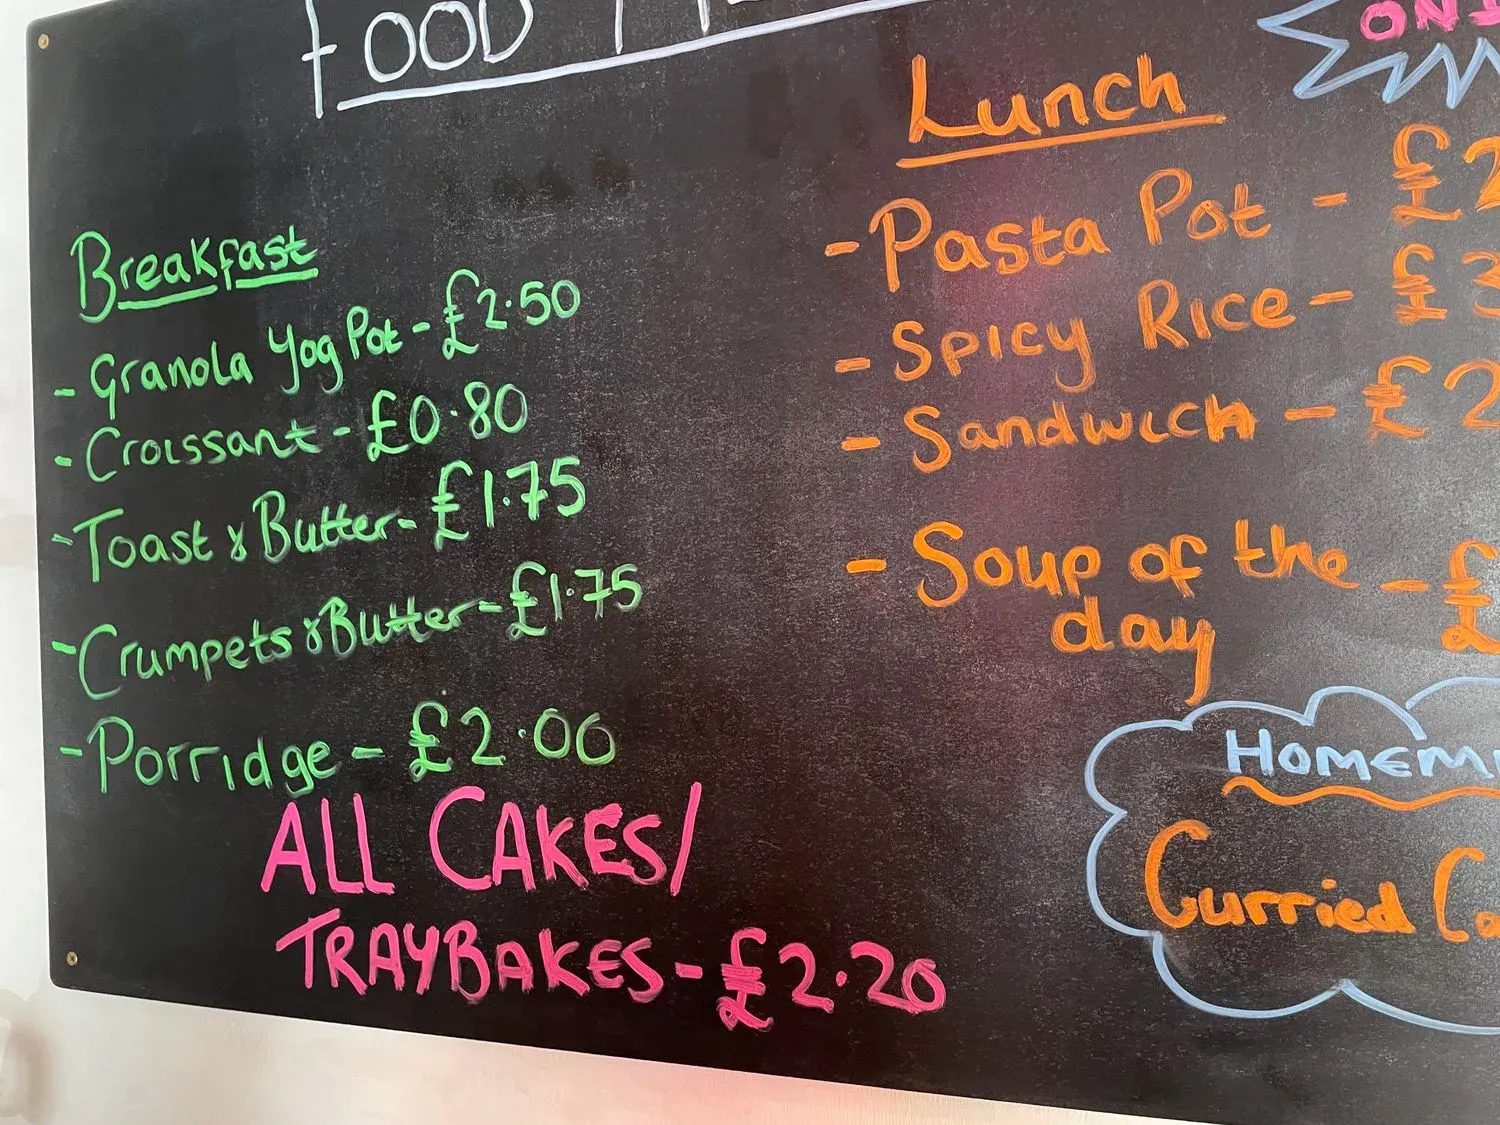 FOOD
Breakfast
- Granola Yog Pot - £2.50
- Croissant - £0.80
- Toast & Butter - £1.75
- Crumpets & Butter - £1.75
- Porridge - £2.00
ALL CAKES/
TRAYBAKES - £2.20
Lunch
- Pasta Pot - £2
- Spicy Rice - £3
- Sandwich - £2
- Soup of the - £
day
Curried